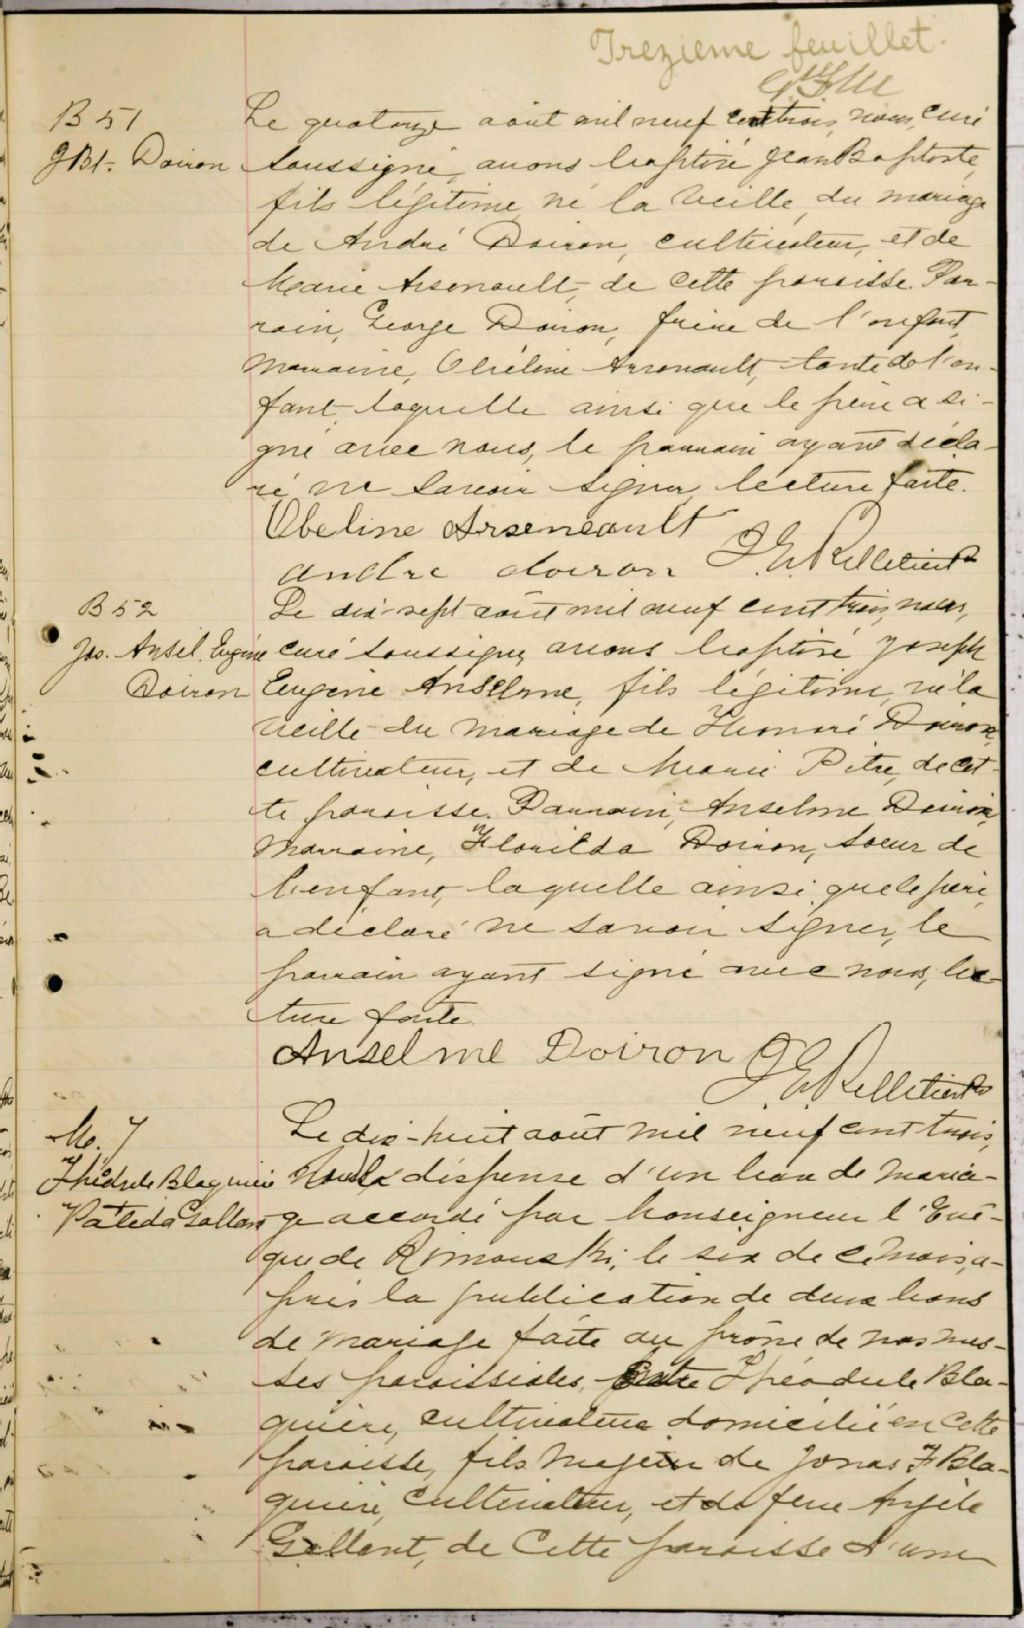 Trezieme feuillet.
B 51
J Bt. Doiron
Le quatorze août mil neuf cent trois, nous, curé
soussigné, avons baptisé Jean Baptiste,
fils légitime né la veille, du mariage
de André Doiron, cultivateur, et de
Marie Arsenault, de cette paroisse. Par-
rain, George Doiron, frère de l'enfant,
marraine, Obéline Arsenault, tante de l'en-
fant, laquelle ainsi que le père a si-
gné avec nous, le parrain ayant décla-
ré ne savoir signer, lecture faite.
Obeline Arseneault
andre doiron J. E. Pelletier Ptre
B 52
Jos. Ansel. Eugène
Doiron
Le dix-sept août mil neuf cent trois, nous,
curé soussigné, avons baptisé Joseph
Eugène Anselme, fils légitime, né la
veille du mariage de Honoré Doiron,
cultivateur, et de Marie Pitre, de cet-
te paroisse. Parrain, Anselme Doiron,
Marraine, Florilda Doiron, soeur de
l'enfant, laquelle ainsi que le père,
a déclaré ne savoir signer, le
parrain ayant signé avec nous, lec-
ture faite.
Anselme Doiron J E Pelletier Ptre
M. 7
Théodule Blaquière
&
Valéda Gallant
Le dix-huit août mil neuf cent trois,
vu la dispense d'un ban de maria-
ge accordé par Monseigneur l'Evê-
que de Rimouski, le six de ce mois, a-
près la publication de deux bans
de mariage faite au prône de nos mes-
ses paroissiales, entre Théodule Bla-
quière, cultivateur domicilié en cette
paroisse, fils majeur de Jonas F Bla-
quière, cultivateur, et de feue Angèle
Gallant, de Cette paroisse d'une